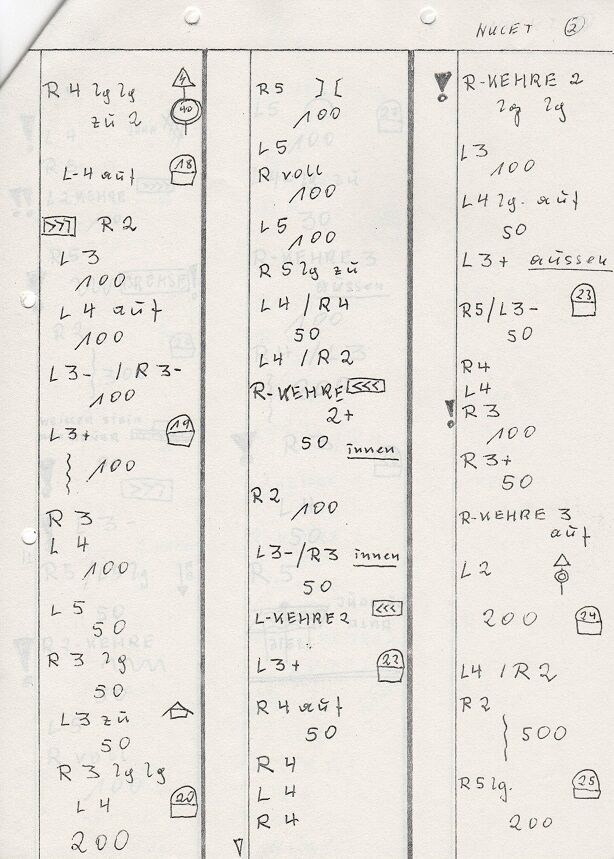 NUCET 2
R 4 lg lg
zu 2
40
L-4 auf 18
>>> R 2
L 3
100
L 4 auf
100
L3- / R3-
100
L3+ 19
100
R 3
L 4
100
L 5
50
R 3 lg
50
L3 zu
50
R 3 lg lg
L 4 20
200
R5 ] [
100
L5
R voll
100
L5
100
R 5 lg zu
L4 / R4
50
L4 / R2
R-KEHRE <<<
2+
50 innen
R2
100
L3-/R3 innen
50
L-KEHRE2 <<<
L3+ 22
R4 auf
50
R 4
L 4
R 4
! R-KEHRE 2
lg lg
L3
100
L4 lg. auf
50
L3+ aussen
R5/L3- 23
50
R4
L4
! R3
100
R3+
50
R-KEHRE 3
auf
L2
200 24
L4 / R2
R2
500
R5 lg. 25
200